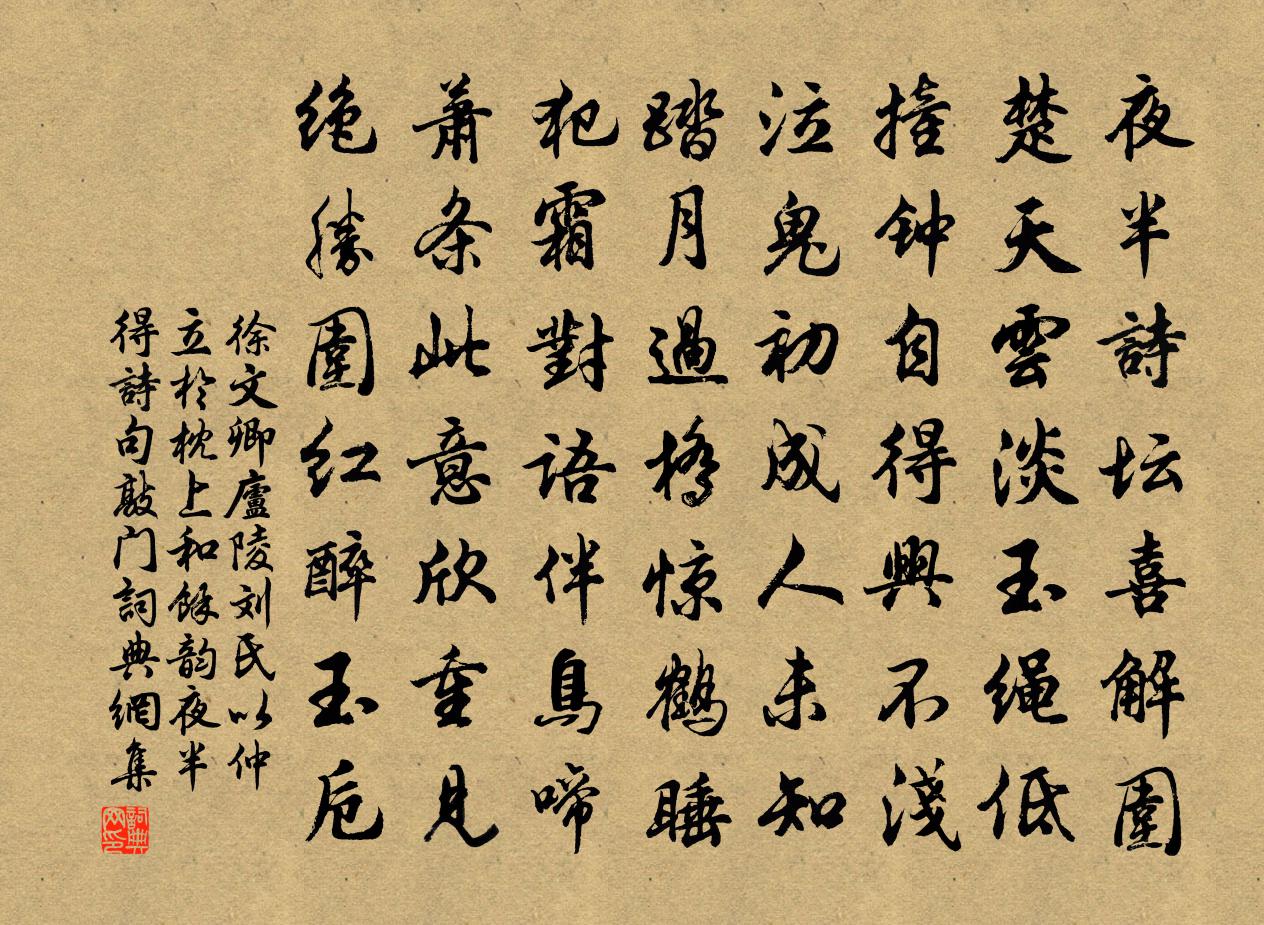 夜半詩坛喜解圍
楚天雲淡玉绳低
撞钟自得興不淺
泣鬼初成人未知
踏月過橋惊鶴睡
犯霜對語伴鳥啼
萧条此意欣重見
绝勝圍红醉玉卮
徐文卿廬陵刘氏以仲
立於枕上和餘韵夜半
得詩句敲门詞典網集
詞典网印